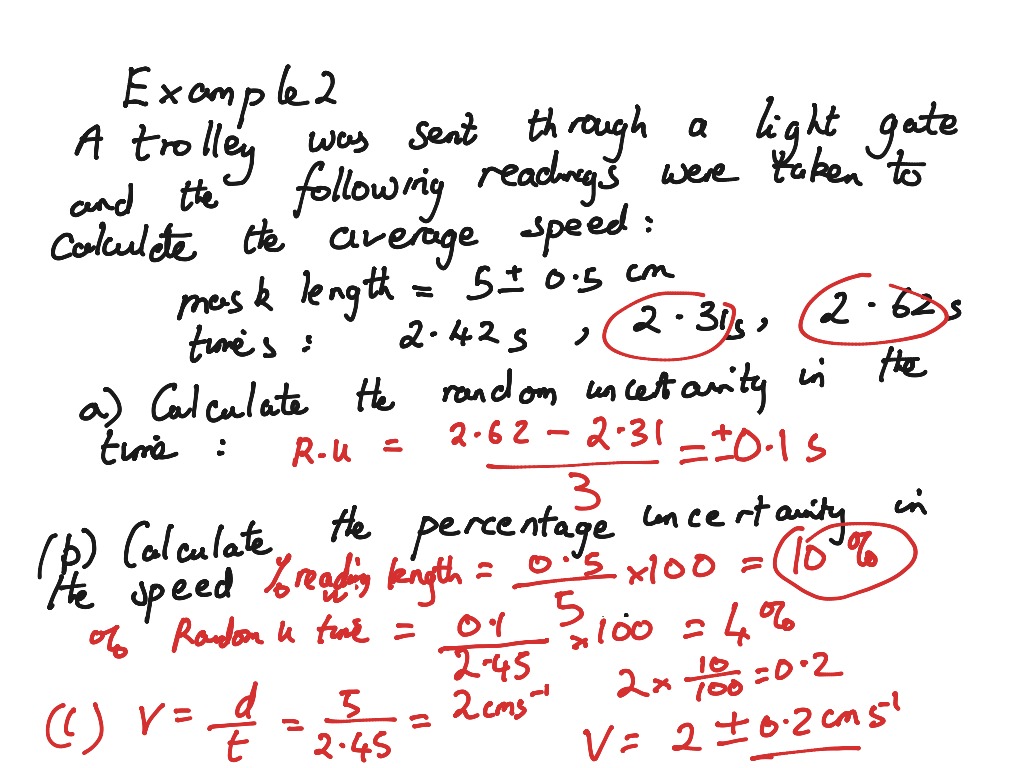 Example 2
A trolley was sent through a light gate
and the following readings were taken to
Calculate the average speed:
mask length = 5 ± 0.5 cm
times: 2.42 s , 2.31s, 2.62 s
a) Calculate the random uncertainity in the
time: R.u = 2.62 - 2.31 / 3 = ±0.1 s
(b) Calculate the percentage uncertainity in
the speed % reading u length = 0.5 / 5 ×100 = 10 %
% Random u time = 0.1 / 2.45 ×100 = 4 %
2 × 10 / 100 = 0.2
(c) V = d / t = 5 / 2.45 = 2 cms⁻¹
V = 2 ± 0.2 cm s⁻¹